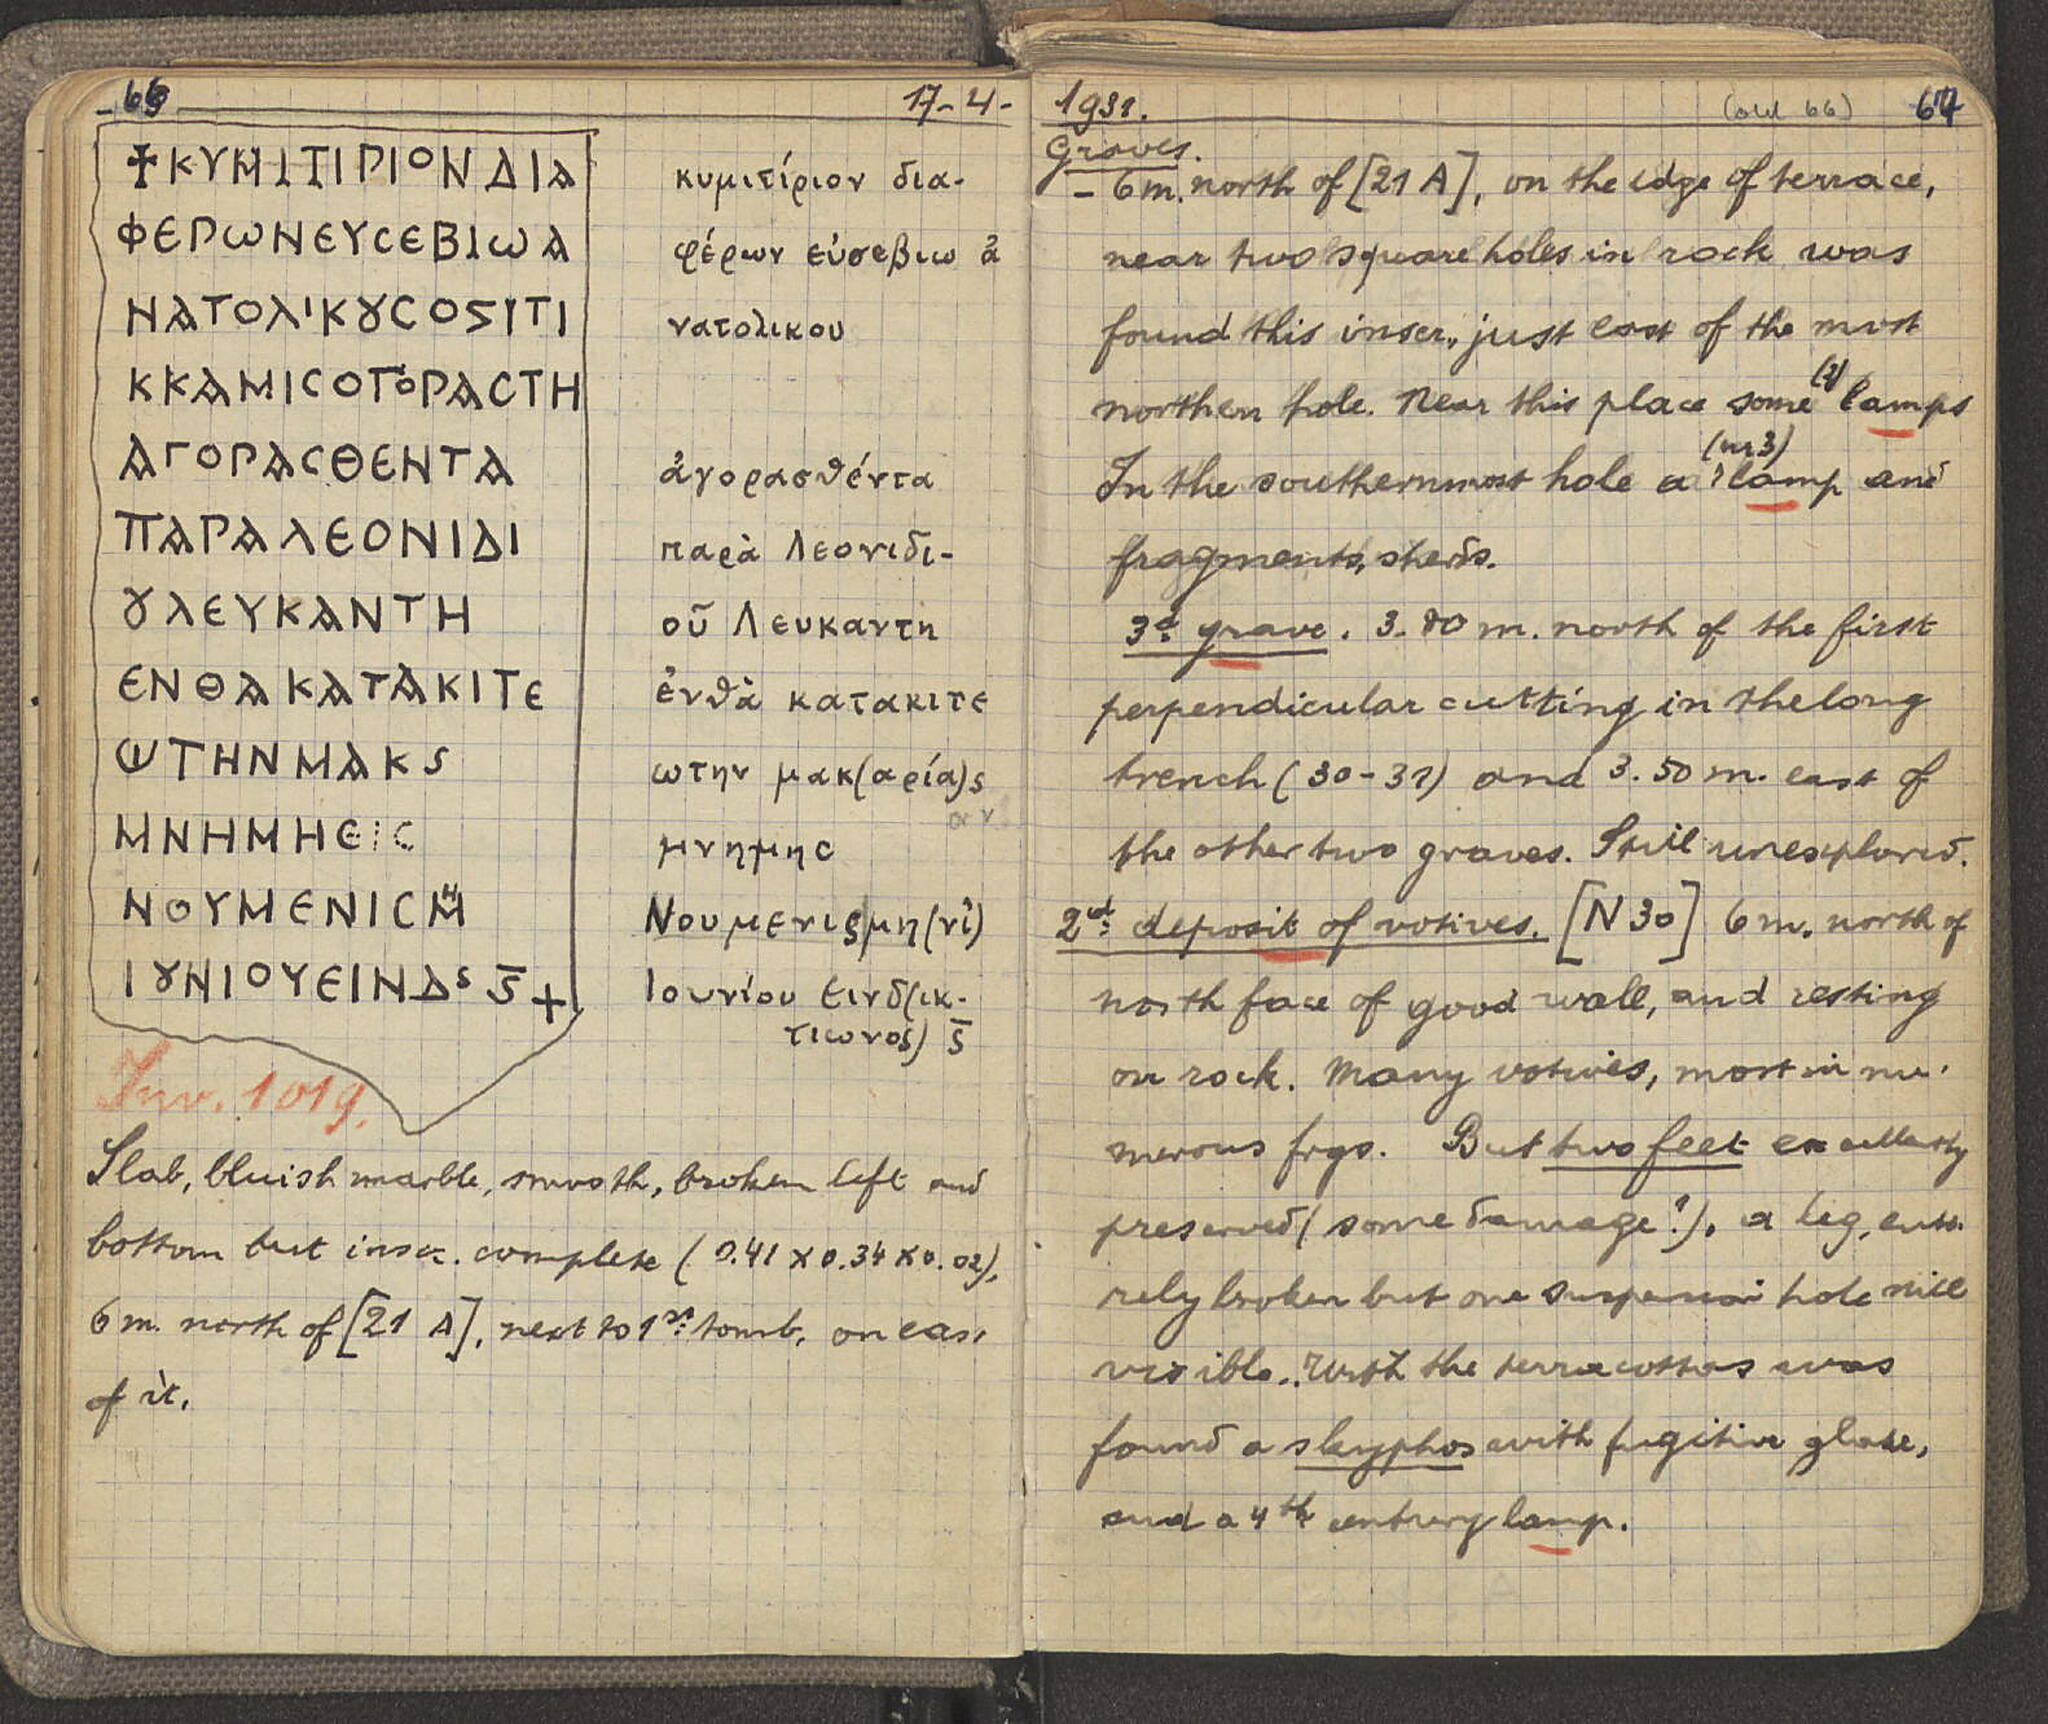 17-4-
✝ΚΥΜΙΤΙΡΙΟΝΔΙΑ
ΦΕΡωΝΕΥCΕΒΙωΑ
ΝΑΤΟΛΙΚȣCΟSΙΤΙ
ΚΚΑΜΙCΟΓΟΡΑCΤΗ
ΑΓΟΡΑCΘΕΝΤΑ
ΠΑΡΑΛΕΟΝΙΔΙ
ȣΛΕΥΚΑΝΤΗ
ΕΝΘΑΚΑΤΑΚΙΤΕ
ωΤΗΝΜΑΚS
ΜΝΗΜΗΕΙC
ΝΟΥΜΕΝΙCΜΗ
ΙȣΝΙΟΥΕΙΝΔS S̅ +
κυμιτίριον δια-
φέρων εὐσεβιω ἀ
νατολικου
ἀγορασθέντα
παρὰ Λεονιδι-
οῦ Λευκαντη
ἐνθὰ κατακιτε
ωτην μακ(αρία)ς
αν
μνημης
Νουμενις|μη(νὶ)
Ιουνίου εινδ(ικ-
τιωνος) S̅
Inv. 1019.
Slab, bluish marble, smooth, broken left and
bottom but inscr. complete (0.41 x 0.34 x 0.02),
6 m. north of [21 A], next to 1st tomb, on east
of it.
1931. (old 66) 67
Graves.
- 6 m. north of [21 A], on the edge of terrace,
near two square holes in rock was
found this inscr., just east of the most
northern hole. Near this place some lamps
In the southernmost hole a (nr 3) lamp and
fragments, sherds.
3d grave. 3.80 m. north of the first
perpendicular cutting in the long
trench (30-31) and 3.50 m. east of
the other two graves. Still unexplored.
2nd deposit of votives. [N 30] 6 m. north of
north face of good wall, and resting
on rock. Many votives, most in nu-
merous frgs. But two feet excellently
preserved (some damage?), a leg, enti-
rely broken but one suspension hole still
visible. With the terracottas was
found a skyphos with fugitive glaze,
and a 4th century lamp.